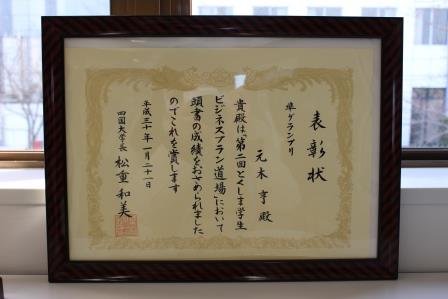 表彰状
準グランプリ
元木 亨 殿
貴殿は「第二回とくしま学生
ビジネスプラン道場」において
頭書の成績をおさめられました
のでこれを賞します
平成三十年一月二十一日
四国大学長 松重和美